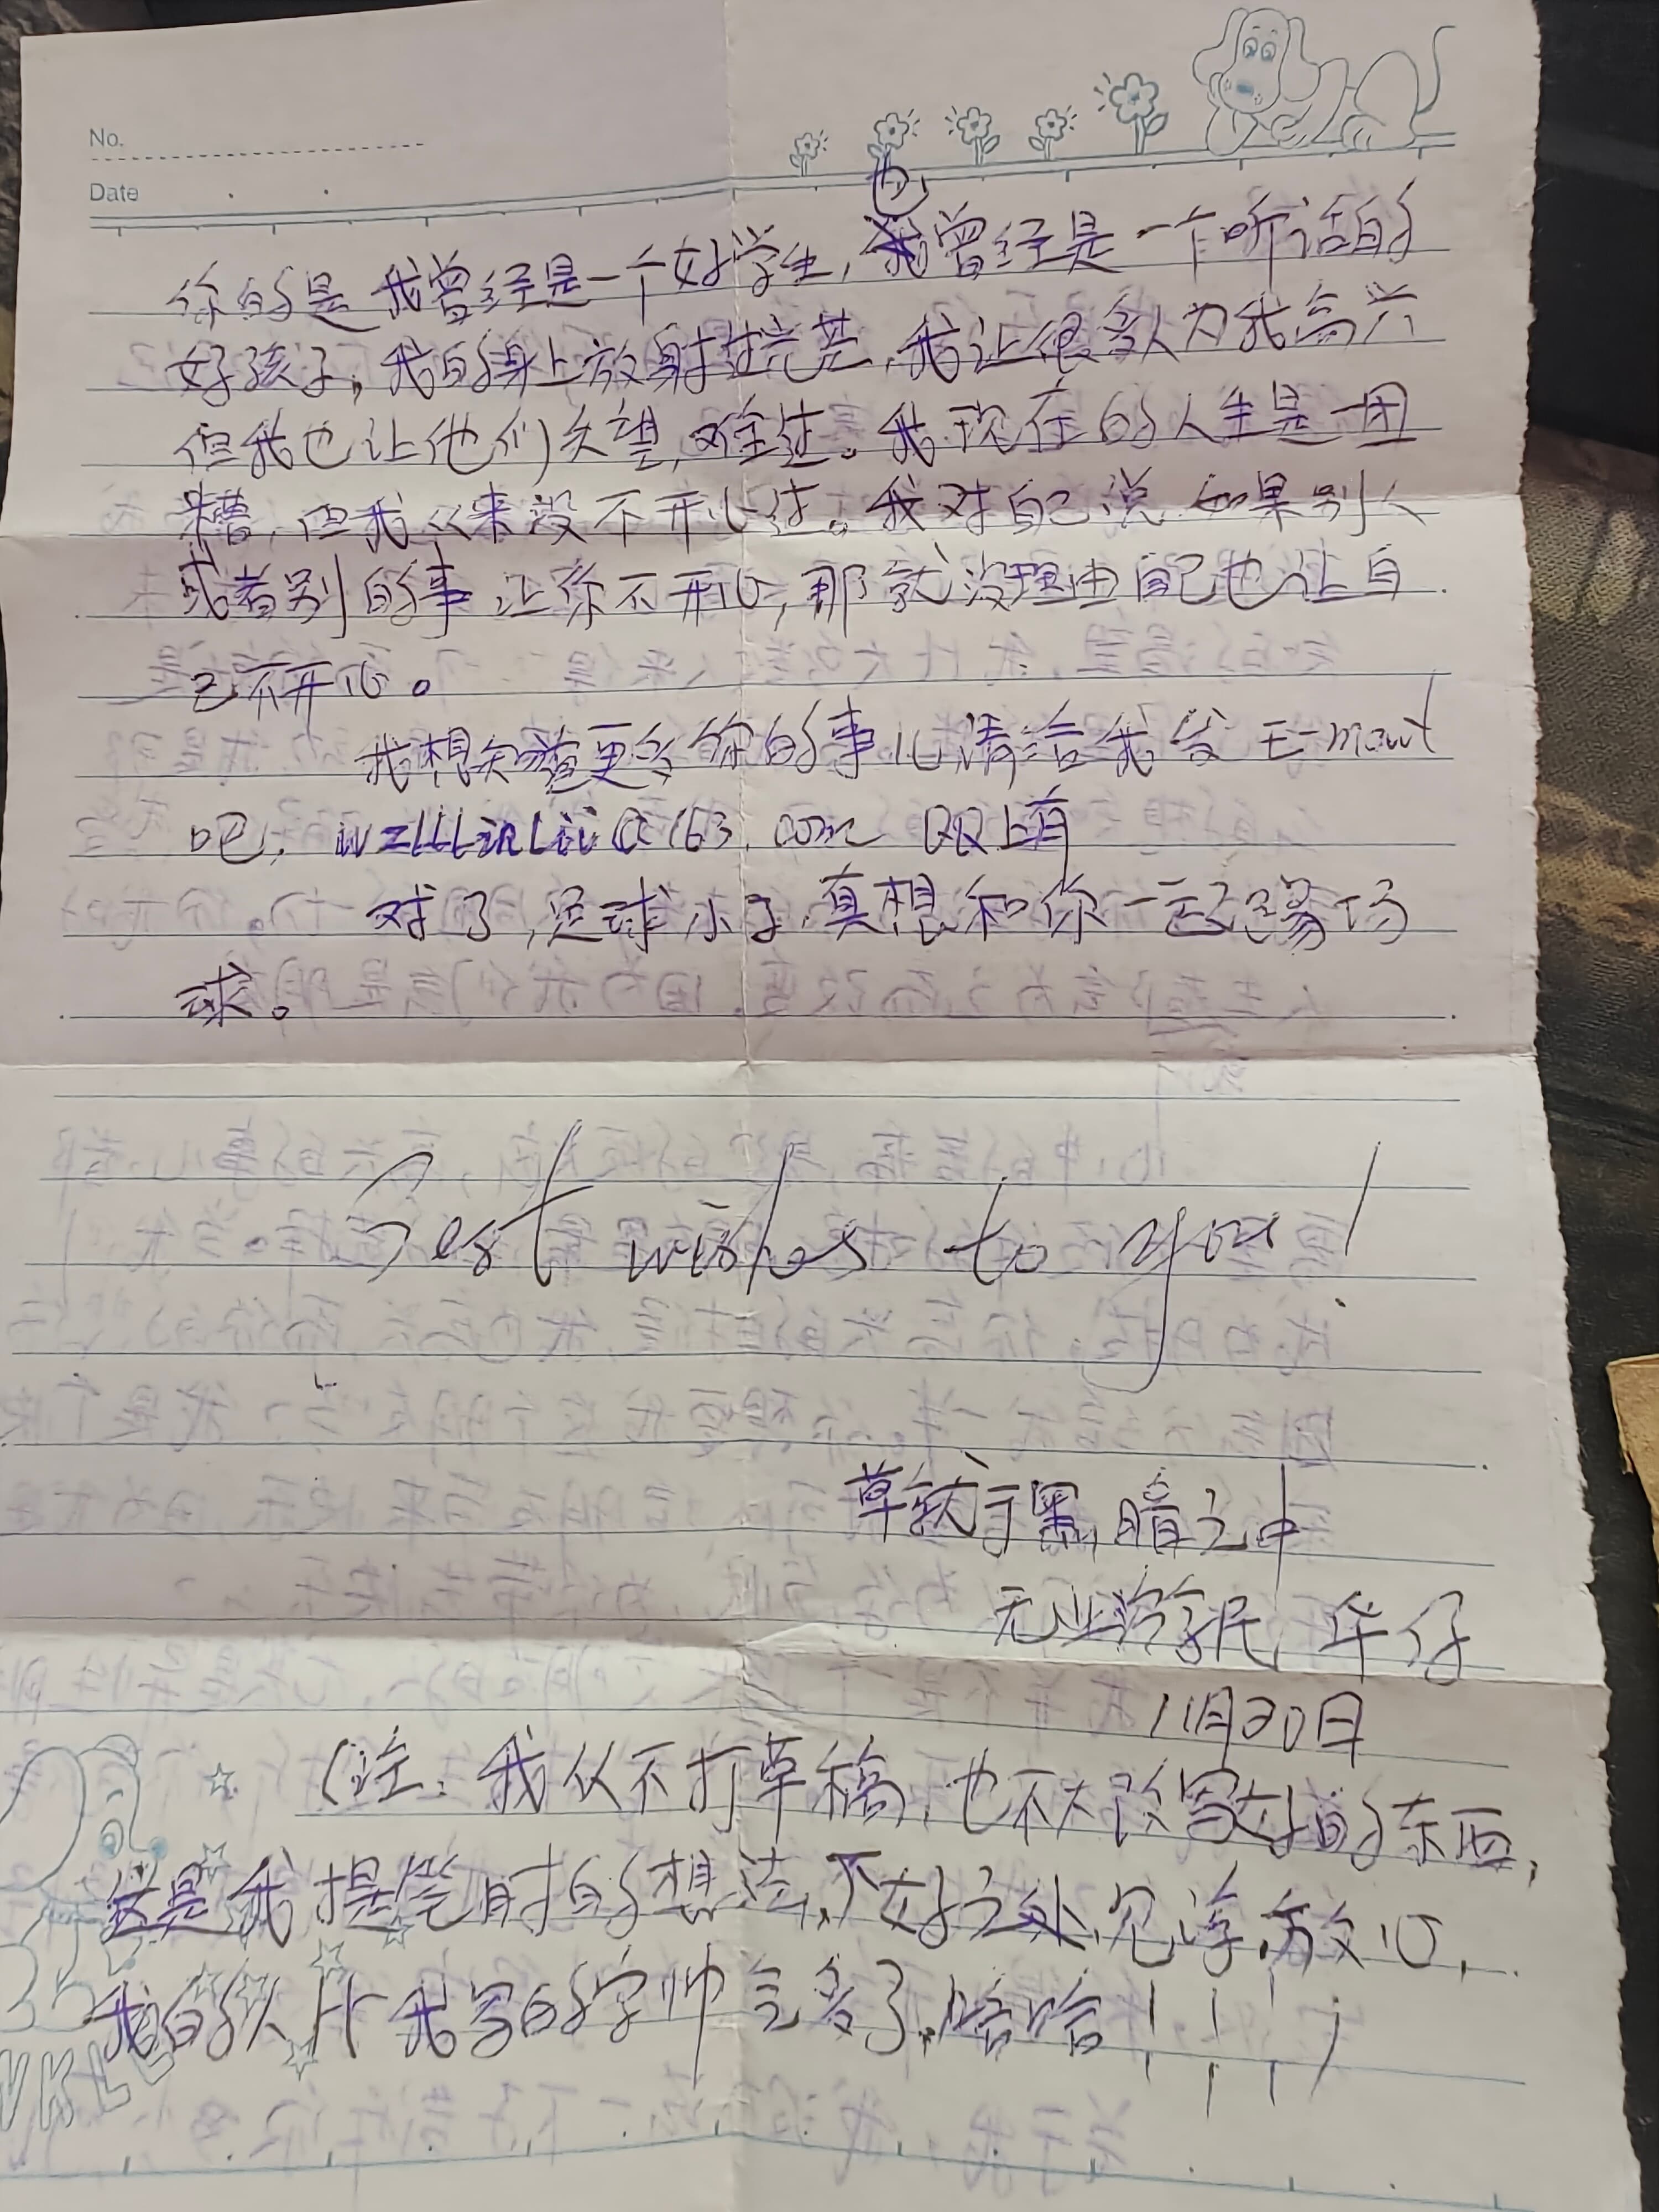 No.
Date
你的是我曾经是一个好学生,我曾经是一个听话的
好孩子,我的身上放射过光芒,我让很多人为我高兴
但我也让他们失望,难过。我现在的人生是一团
糟,但我从来没不开心过。我对自己说 如果别人
或者别的事让你不开心,那就没理由自己也让自
己不开心。
我想知道更多你的事儿,请给我发 E-mail
吧, @163.com QQ上有
对了,足球小子,真想和你一起踢场
球。
Best wishes to you!
草就于黑暗之中
无业游民 华仔
11月30日
(注:我从不打草稿,也不大改写好的东西,
这是我提笔时的想法,不好之处,见谅,放心,
我的人比我写的字帅气多了,哈哈!!!